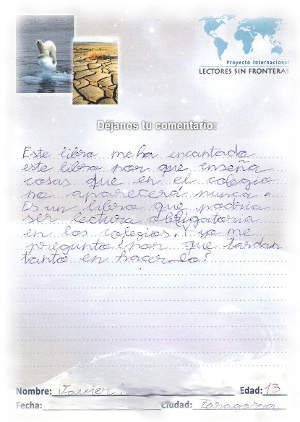 Proyecto Internacional
LECTORES SIN FRONTERAS
Déjanos tu comentario:
Este libro me ha encantado
este libro por que enseña
cosas que en el colegio
no aparecerá nunca.
Es un libro que podria
ser lectura obligatoria
en los colegios. Y yo me
pregunto ¿por que tardan
tanto en hacerlo?
Nombre: Javier Edad: 13
Fecha: Ciudad: Zaragoza